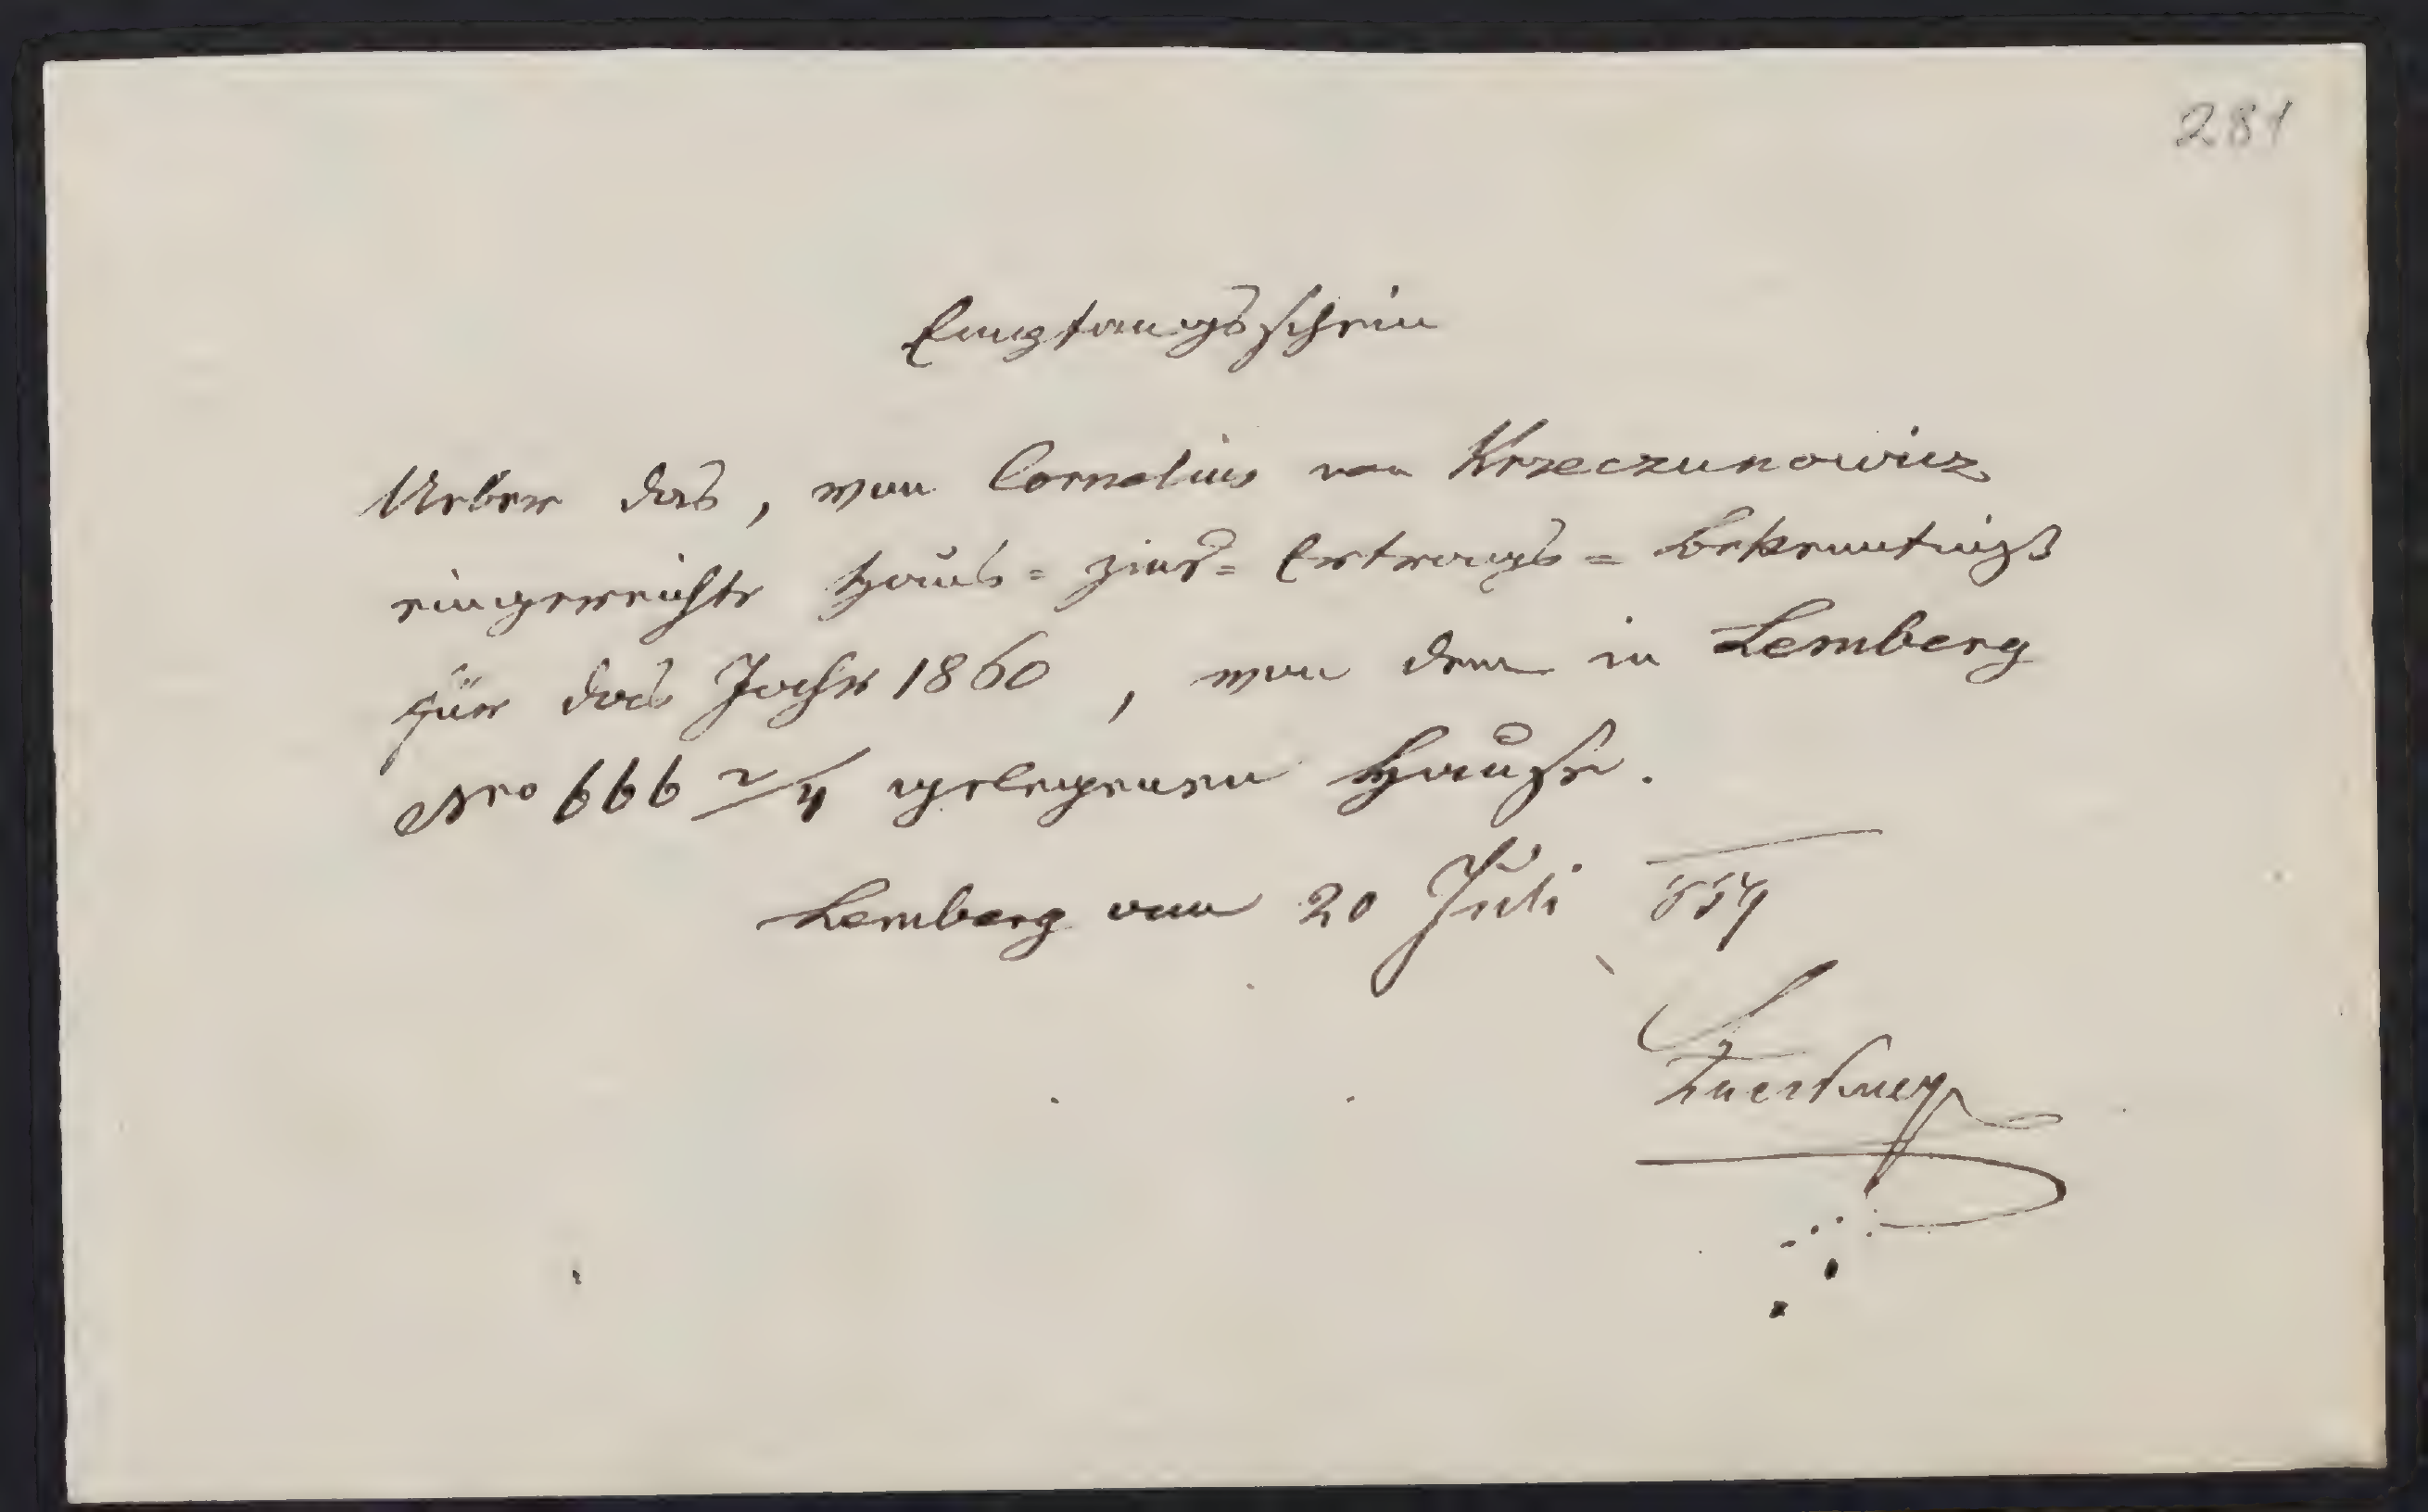 281
Empfangsschein
Ueber das, von Cornelius von Krzeczunowicz
eingereichte Haus= Zins= Ertrags= Bekenntniß
für das Jahr 1860, von dem in Lemberg
Nro 666 2/4 gelegenen Hause.
Lemberg am 20 Juli 859